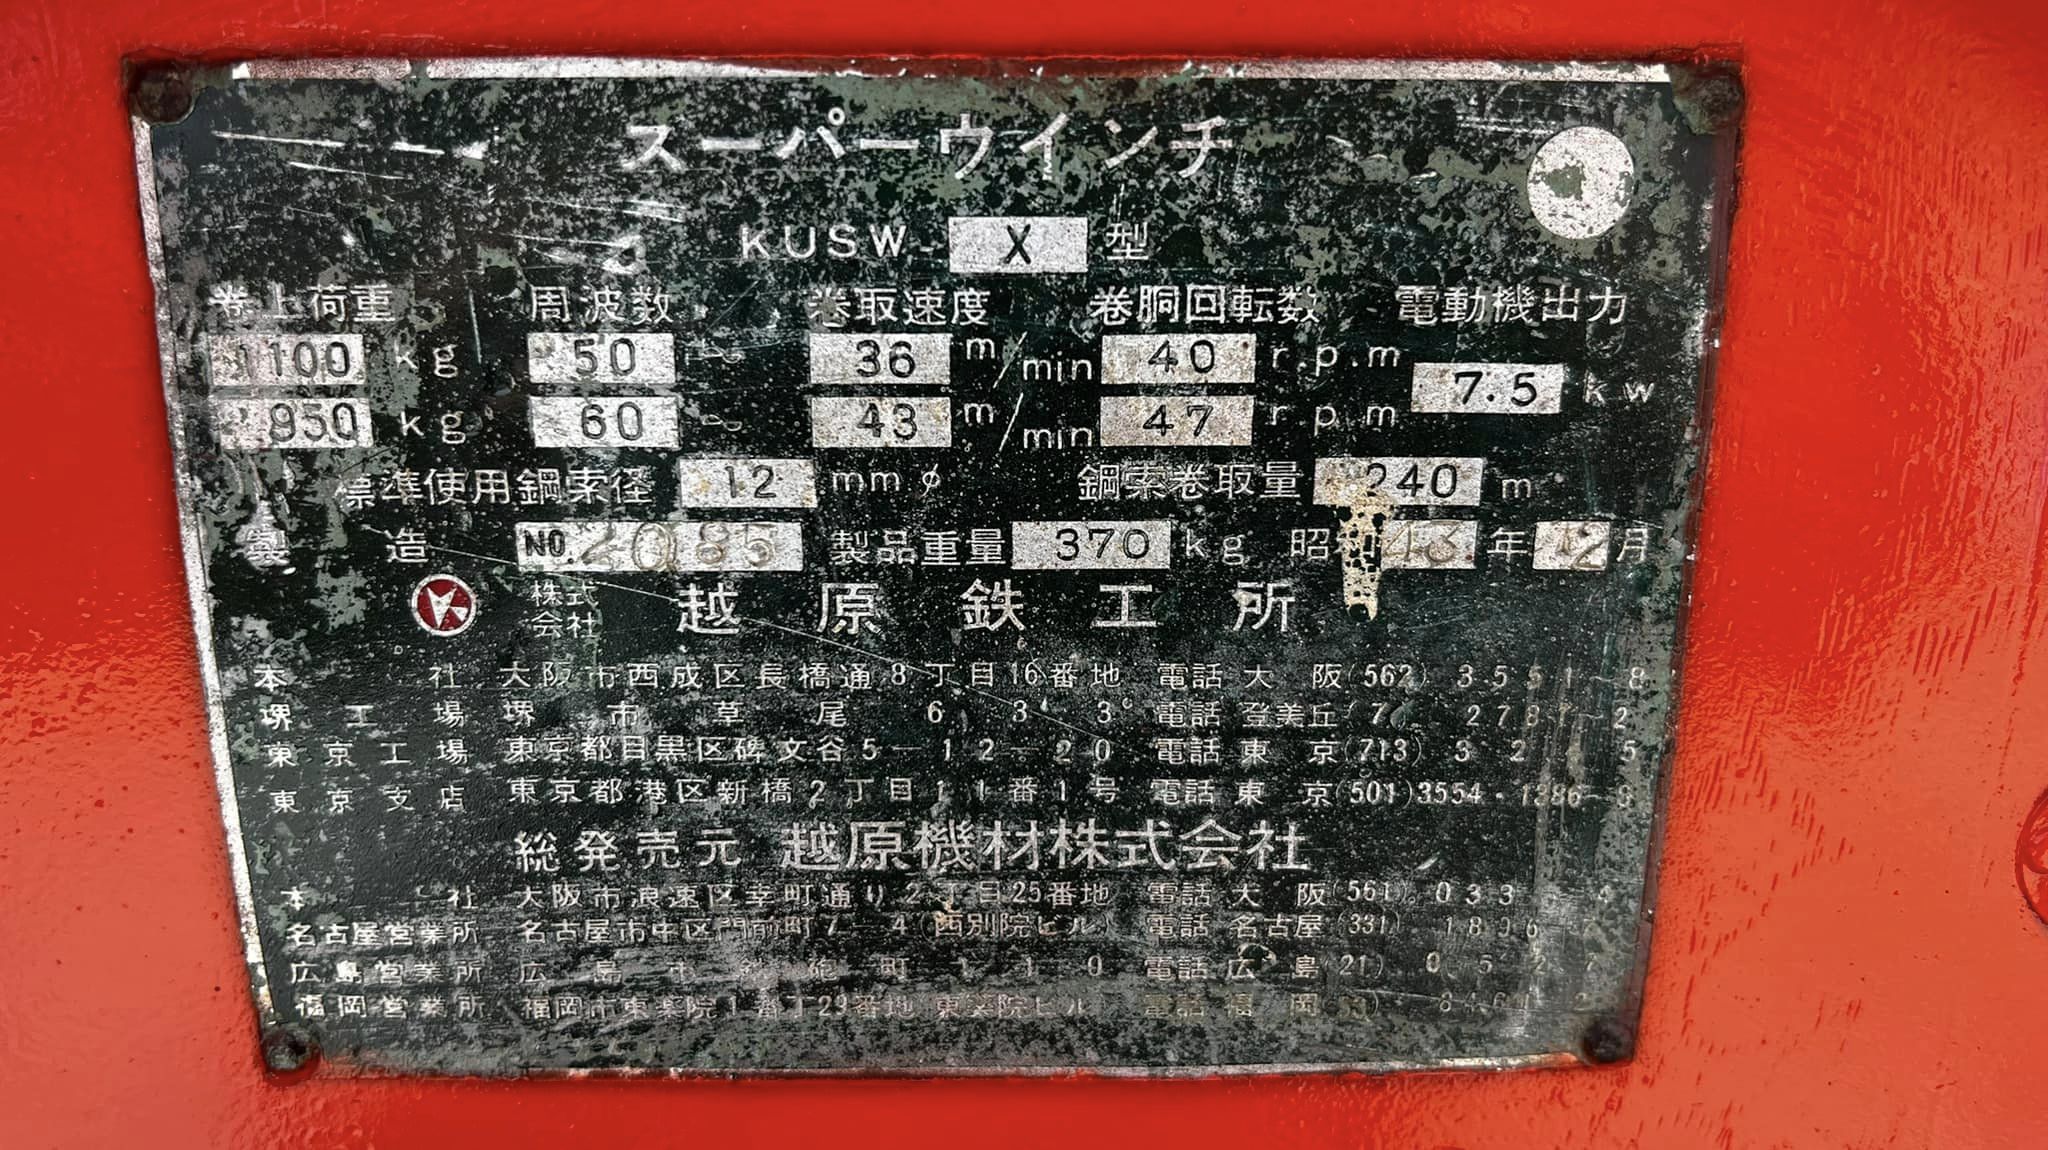 スーパーウインチ
KUSW-X型
巻上荷重 周波数 巻取速度 巻胴回転数 電動機出力
1100 kg 50 ~ 36 m/min 40 r.p.m 7.5 kw
950 kg 60 ~ 43 m/min 47 r.p.m
標準使用鋼索径 12 mmφ 鋼索巻取量 240 m
製造 NO. 2085 製品重量 370 kg 昭和43年12月
株式会社 越原鉄工所
本社 大阪市西成区長橋通8丁目16番地 電話 大阪(562) 3551~8
堺工場 堺市草尾633 電話 登美丘
東京工場 東京都目黒区碑文谷5-12-20 電話 東京(713)
東京支店 東京都港区新橋2丁目11番1号 電話 東京(501)3554・1386~9
総発売元 越原機材株式会社
本社 大阪市浪速区幸町通り2丁目25番地 電話 大阪(561)
名古屋営業所 名古屋市中区門前町7-4(西別院ビル) 電話 名古屋(331)
広島営業所 広島市鉄砲町 電話 広島(21)
福岡営業所 福岡市東薬院1番丁29番地 東薬院ビル 電話 福岡